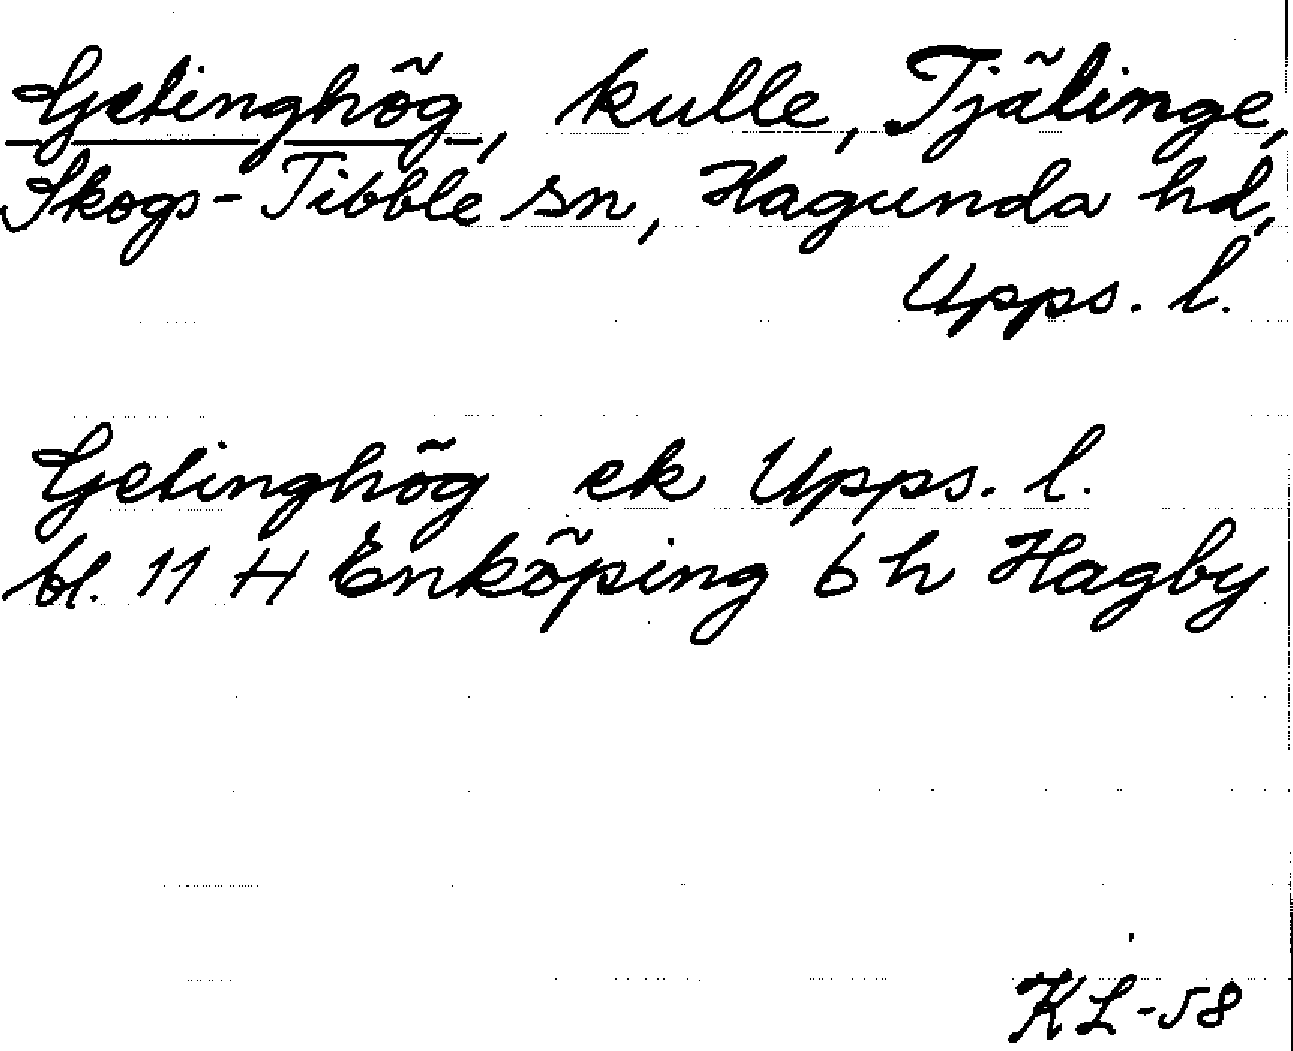 Getinghög, kulle, Tjälinge,
Skogs-Tibble sn, Hagunda hd,
Upps. l.
Getinghög ek Upps. l.
bl. 11 H Enköping 6 h Hagby
KL-58